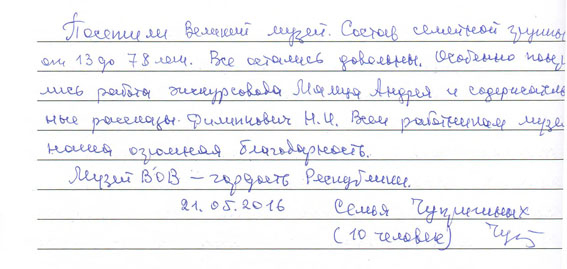 Посетили Великий музей. Состав семейной группы
от 13 до 78 лет. Все остались довольны. Особенно понра
лись работа экскурсовода Андрея и содержатель
ные рассказы Филинович Н.И. Всем работникам музея
наша огромная благодарность.
Музей ВОВ – гордость Республики.
21.05.2016 Семья
(10 человек)